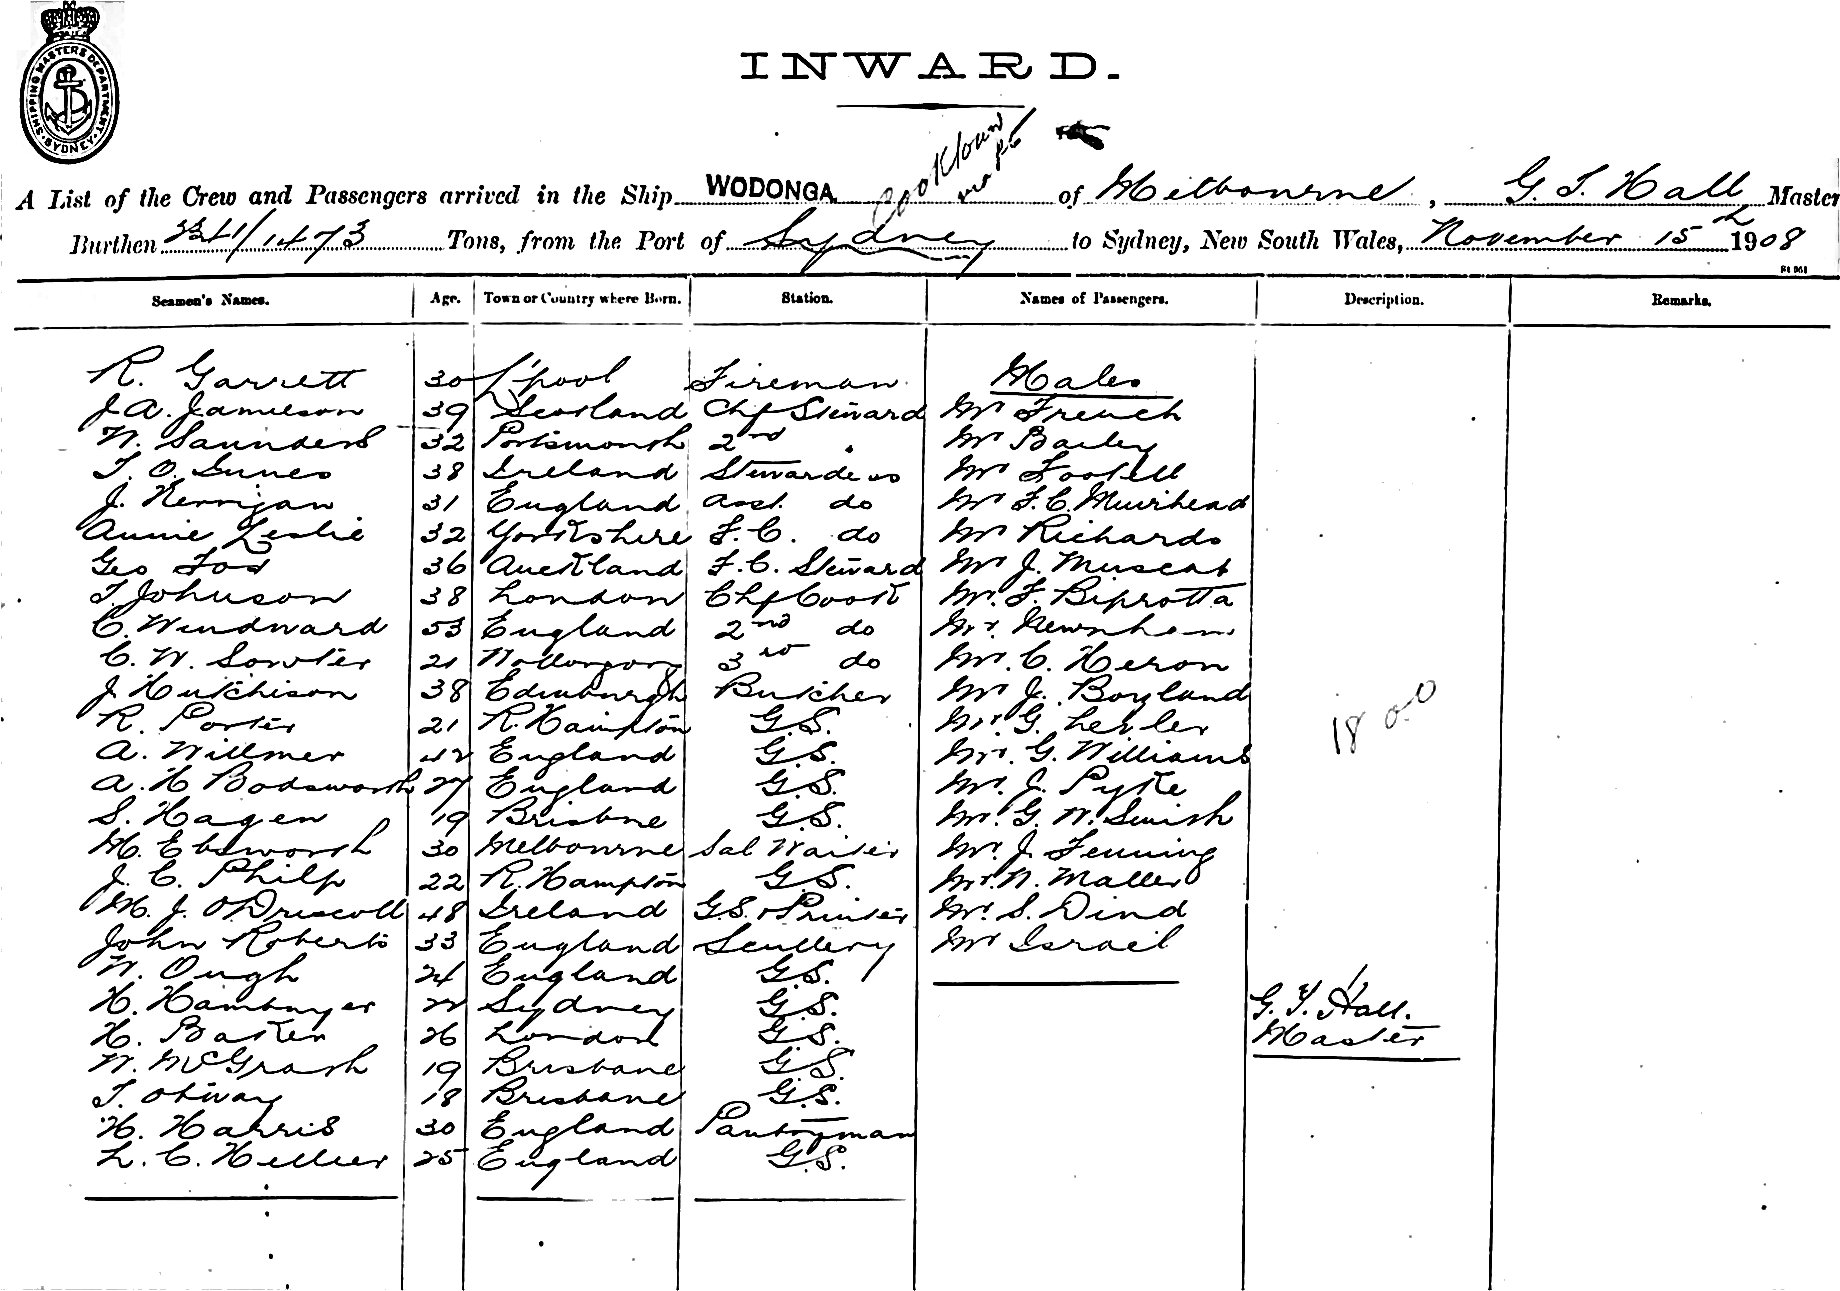 SHIPPING MASTERS DEPARTMENT. SYDNEY.
INWARD.
Cooktown
A List of the Crew and Passengers arrived in the Ship WODONGA of Melbourne, G. T. Hall, Master
Burthen 2341/1473 Tons, from the Port of Sydney to Sydney, New South Wales, November 15th 1908
Seamen's Names. Age. Town or Country where Born. Station. Names of Passengers. Description. Remarks.
R. Garrett 30 L'pool Fireman Males
J. A. Jamieson 39 Scotland Chf Steward Mr French
W. Saunders 32 Portsmouth 2nd " Mr Bailey
T. O. 38 Ireland Stewardess Mr
J. Kerrigan 31 England Asst. do Mr F. C. Muirhead
Annie Leslie 32 Yorkshire F. C. do Mr Richards
Geo Fox 36 Auckland F. C. Steward Mr J. Muscat
T Johnson 38 London Chf Cook Mr. F. Biprotta
C. Windward 53 England 2nd do Mr. Newnham
C. W. Sowter 21 Wollongong 3rd do Mr. C. Heron
J Hutchison 38 Edinburgh Butcher Mr J. Boyland
R. Porter 21 R. Hampton G.S. Mr. G.
A. Willmer 42 England G.S. Mr. G. Williams
A. H Bodsworth 27 England G.S. Mr. J. Pyke
S. Hagen 19 Brisbne G.S. Mr. G. W. Smith
M. Ebsworth 30 Melbourne Sal Waiter Mr. J. Fenning
J. C. Philp 22 R. Hampton G.S. Mr. W. Maller
M. J. O'Driscoll 48 Ireland G.S. & Printer Mr. S. Dind
John Roberts 33 England Scullery Mr Israel
W. Ough 24 England G.S.
H. Hamburger 22 Sydney G.S. G. T. Hall.
H. Baker 26 London G.S. Master
W. McGrath 19 Brisbane G.S.
T. Otway 18 Brisbane G.S.
H. Harris 30 England Pantryman
L. C. Hellier 25 England G.S.